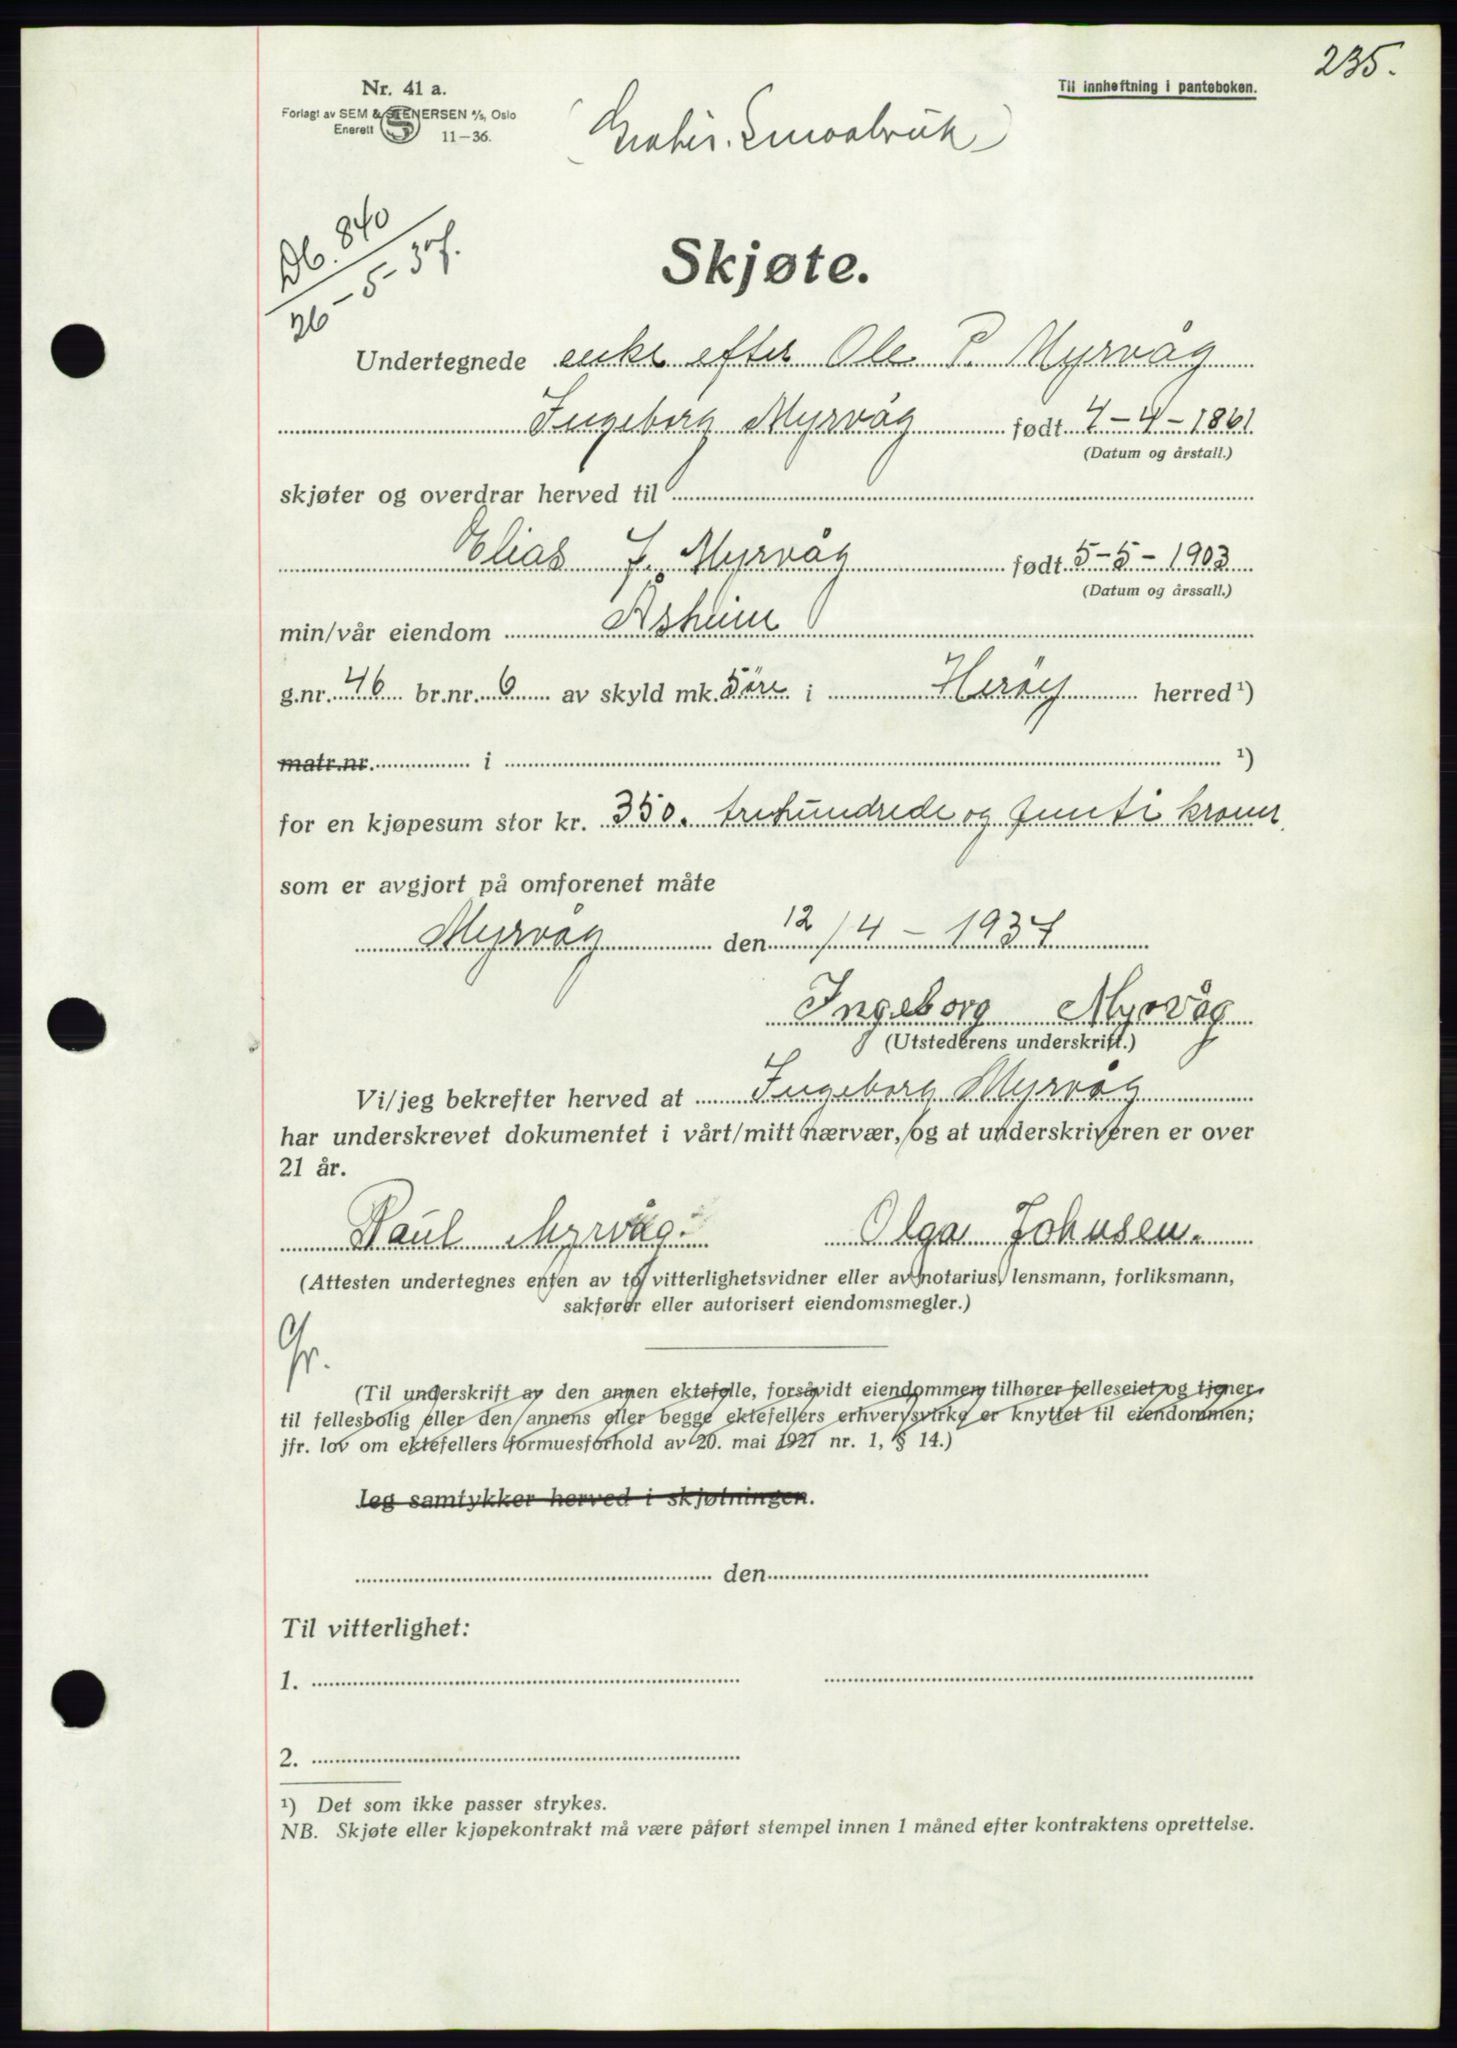 235.
Nr. 41 a.
Til innheftning i panteboken.
Forlagt av SEM & STENERSEN A/S, Oslo
Enerett 11-36.
(Gratis. Småbruk)
Db. 840
26-5-37.
Skjøte.
Undertegnede enke efter Ole P. Myrvåg
Ingeborg Myrvåg født 7-4-1861
(Datum og årstall.)
skjøter og overdrar herved til
Elias J. Myrvåg født 5-5-1903
(Datum og årssall.)
min/vår eiendom Åsheim
g.nr. 46 br.nr. 6 av skyld mk. 5 öre i Heröy herred ¹)
matr.nr. i ¹)
for en kjøpesum stor kr. 350. trehundrede og femti kroner.
som er avgjort på omforenet måte
Myrvåg den 12/4-1937
Ingeborg Myrvåg
(Utstederens underskrift.)
Vi/jeg bekrefter herved at Ingeborg Myrvåg
har underskrevet dokumentet i vårt/mitt nærvær, og at underskriveren er over
21 år.
Paul Myrvåg. Olga Johnsen.
(Attesten undertegnes enten av to vitterlighetsvidner eller av notarius, lensmann, forliksmann,
sakfører eller autorisert eiendomsmegler.)
Gr.
(Til underskrift av den annen ektefelle, forsåvidt eiendommen tilhører felleseiet og tjener
til fellesbolig eller den annens eller begge ektefellers erhvervsvirke er knyttet til eiendommen;
jfr. lov om ektefellers formuesforhold av 20. mai 1927 nr. 1, § 14.)
Jeg samtykker herved i skjøtningen.
den
Til vitterlighet:
1.
2.
¹) Det som ikke passer strykes.
NB. Skjøte eller kjøpekontrakt må være påført stempel innen 1 måned efter kontraktens oprettelse.